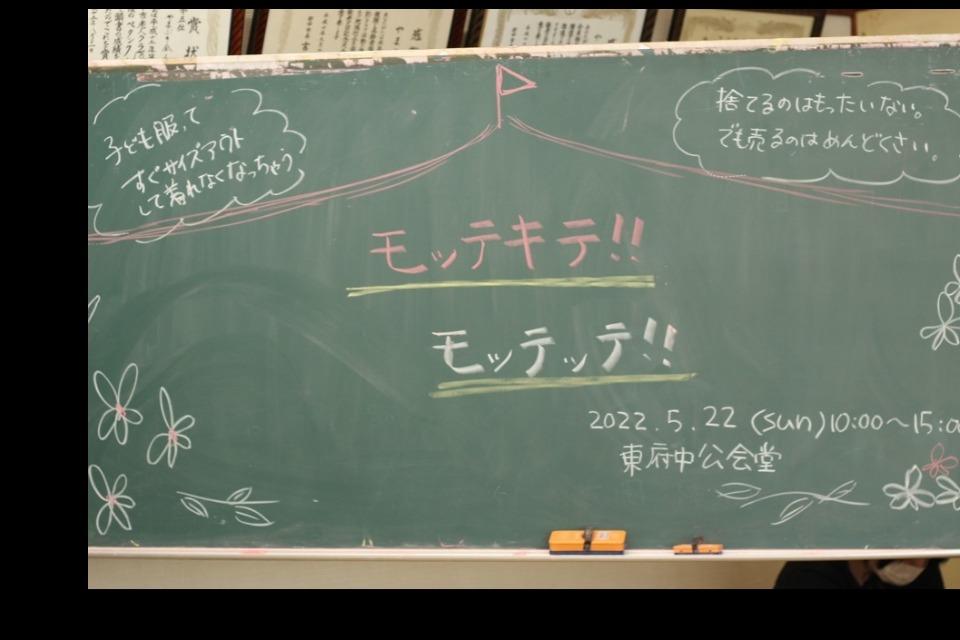 賞状
子ども服って
すぐサイズアウト
して着れなくなっちゃう
捨てるのはもったいない。
でも売るのはめんどくさい。
モッテキテ!!
モッテッテ!!
2022.5.22 (sun) 10:00〜15:00
東府中公会堂